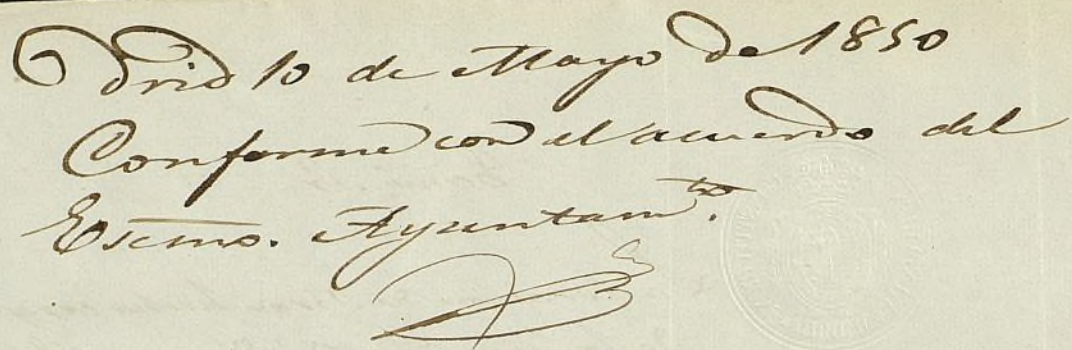 Madrid 10 de Mayo de 1850
Conforme con el acuerdo del
Escmo. Ayuntamto.